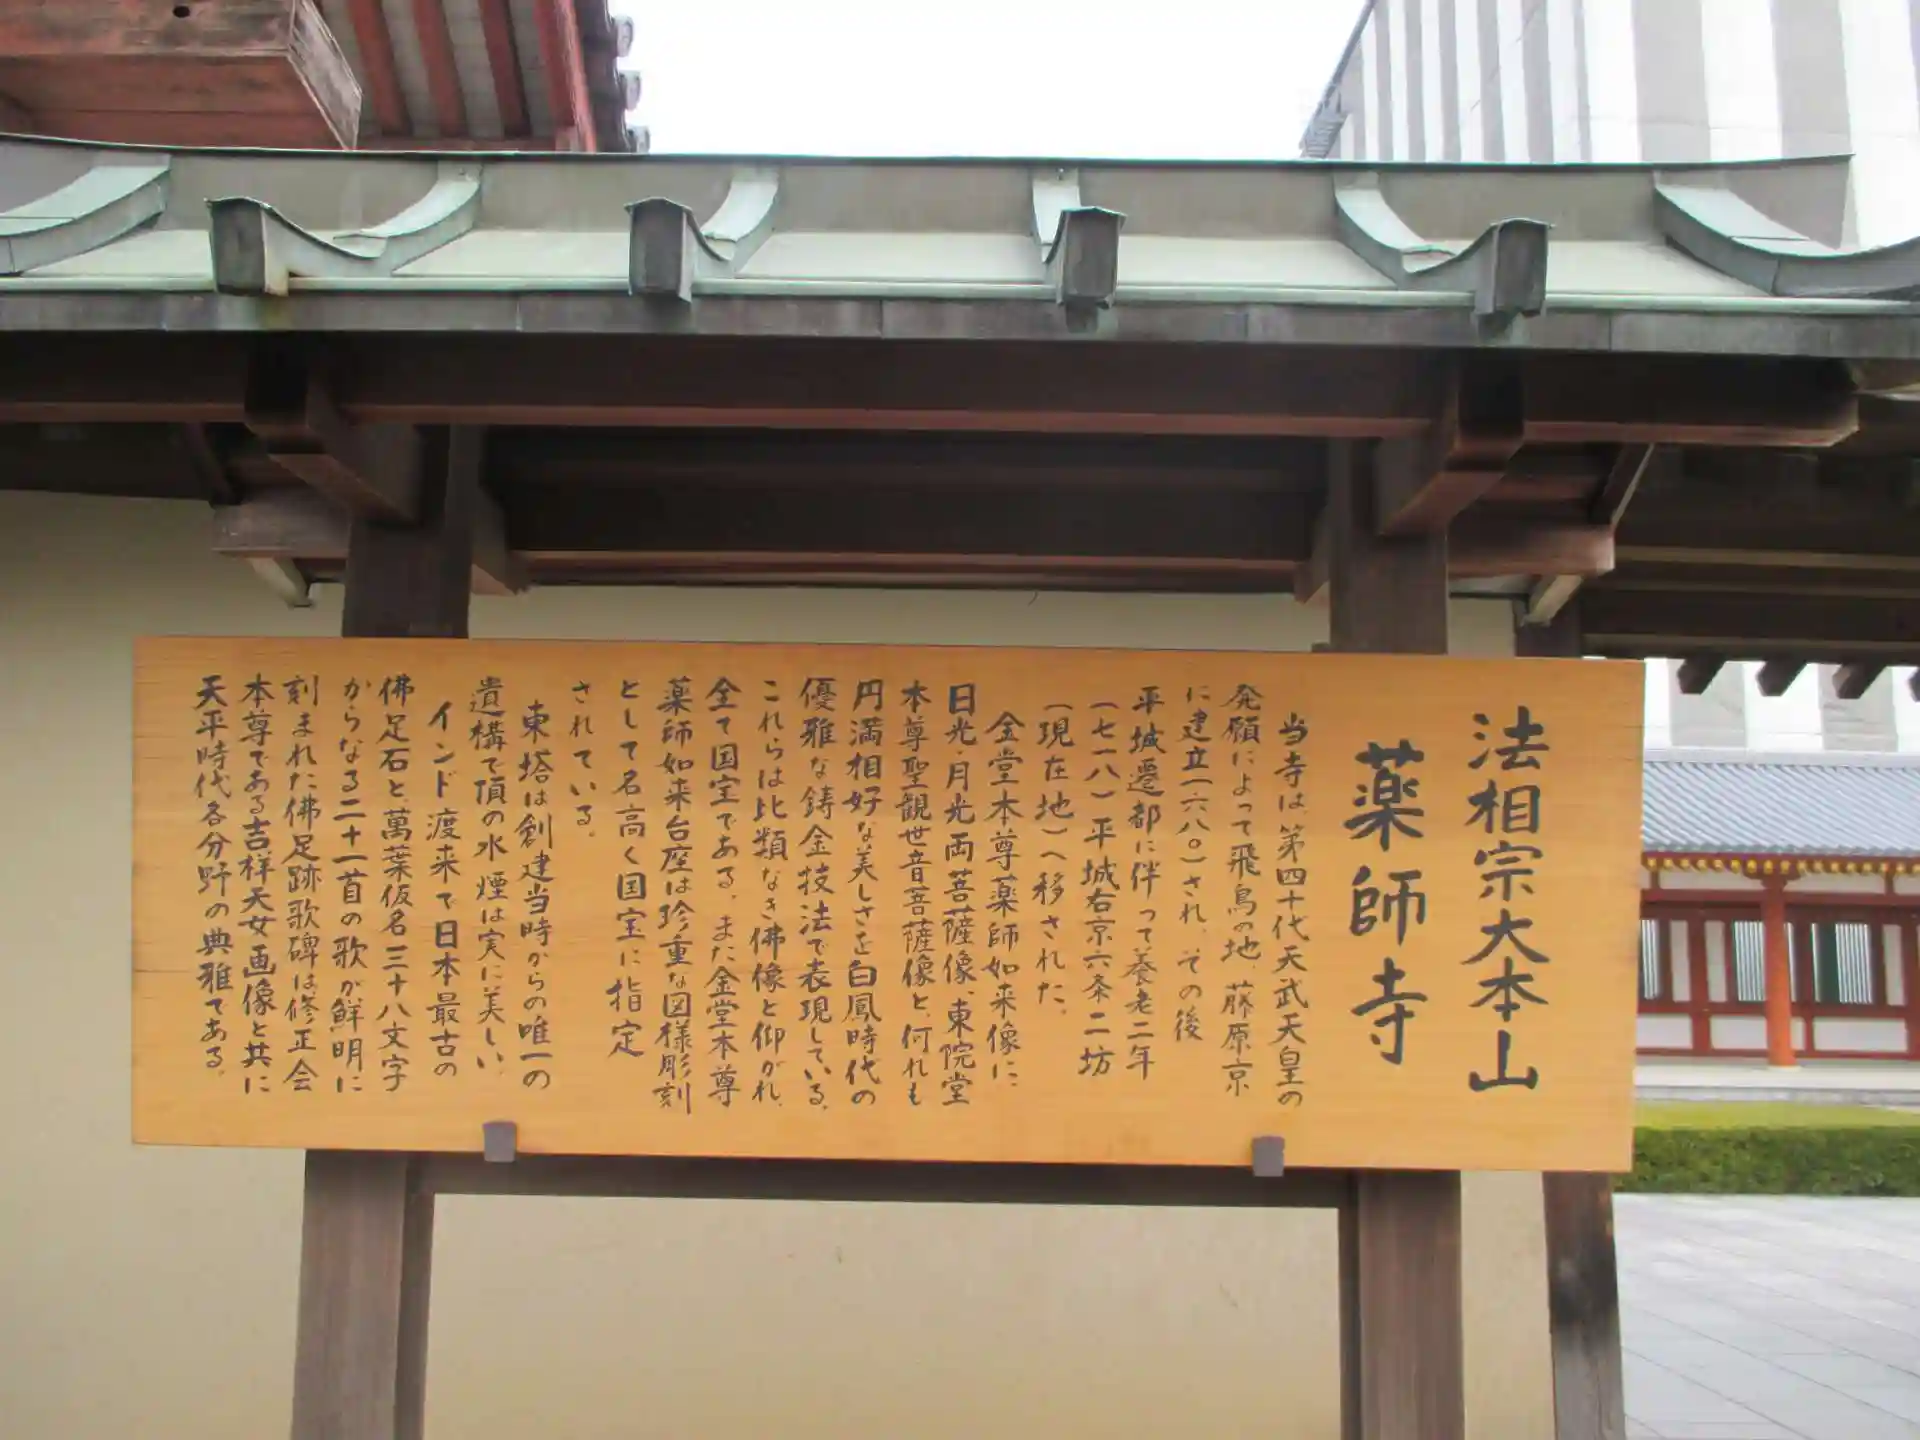 法相宗大本山
薬師寺
当寺は、第四十代天武天皇の
発願によって飛鳥の地、藤原京
に建立(六八〇)され、その後
平城遷都に伴って養老二年
(七一八)平城右京六条二坊
(現在地)へ移された。
金堂本尊薬師如来像に、
日光・月光両菩薩像、東院堂
本尊聖観世音菩薩像と、何れも
円満相好な美しさを白鳳時代の
優雅な鋳金技法で表現している。
これらは比類なき佛像と仰がれ、
全て国宝である。また金堂本尊
薬師如来台座は珍重な図様彫刻
として名高く国宝に指定
されている。
東塔は創建当時からの唯一の
遺構で頂の水煙は実に美しい。
インド渡来で日本最古の
佛足石と、萬葉仮名三十八文字
からなる二十一首の歌が鮮明に
刻まれた佛足跡歌碑は、修正会
本尊である吉祥天女画像と共に
天平時代各分野の典雅である。